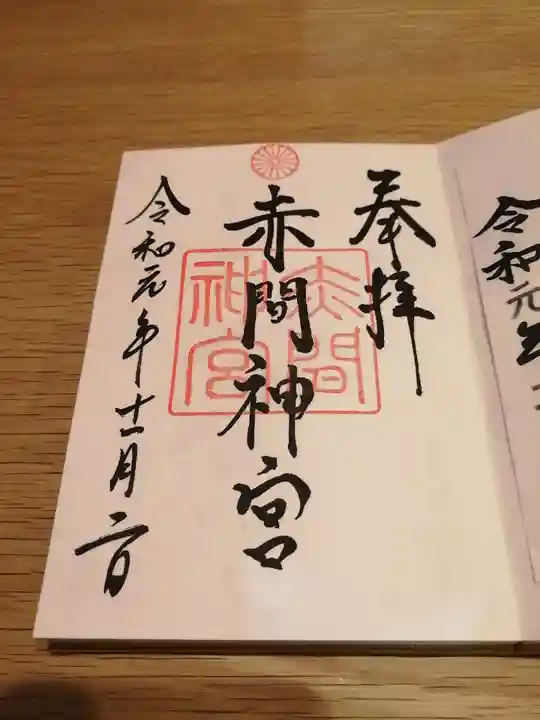 令和元
奉拝
赤間神宮
赤間神宮
令和元年十一月二日